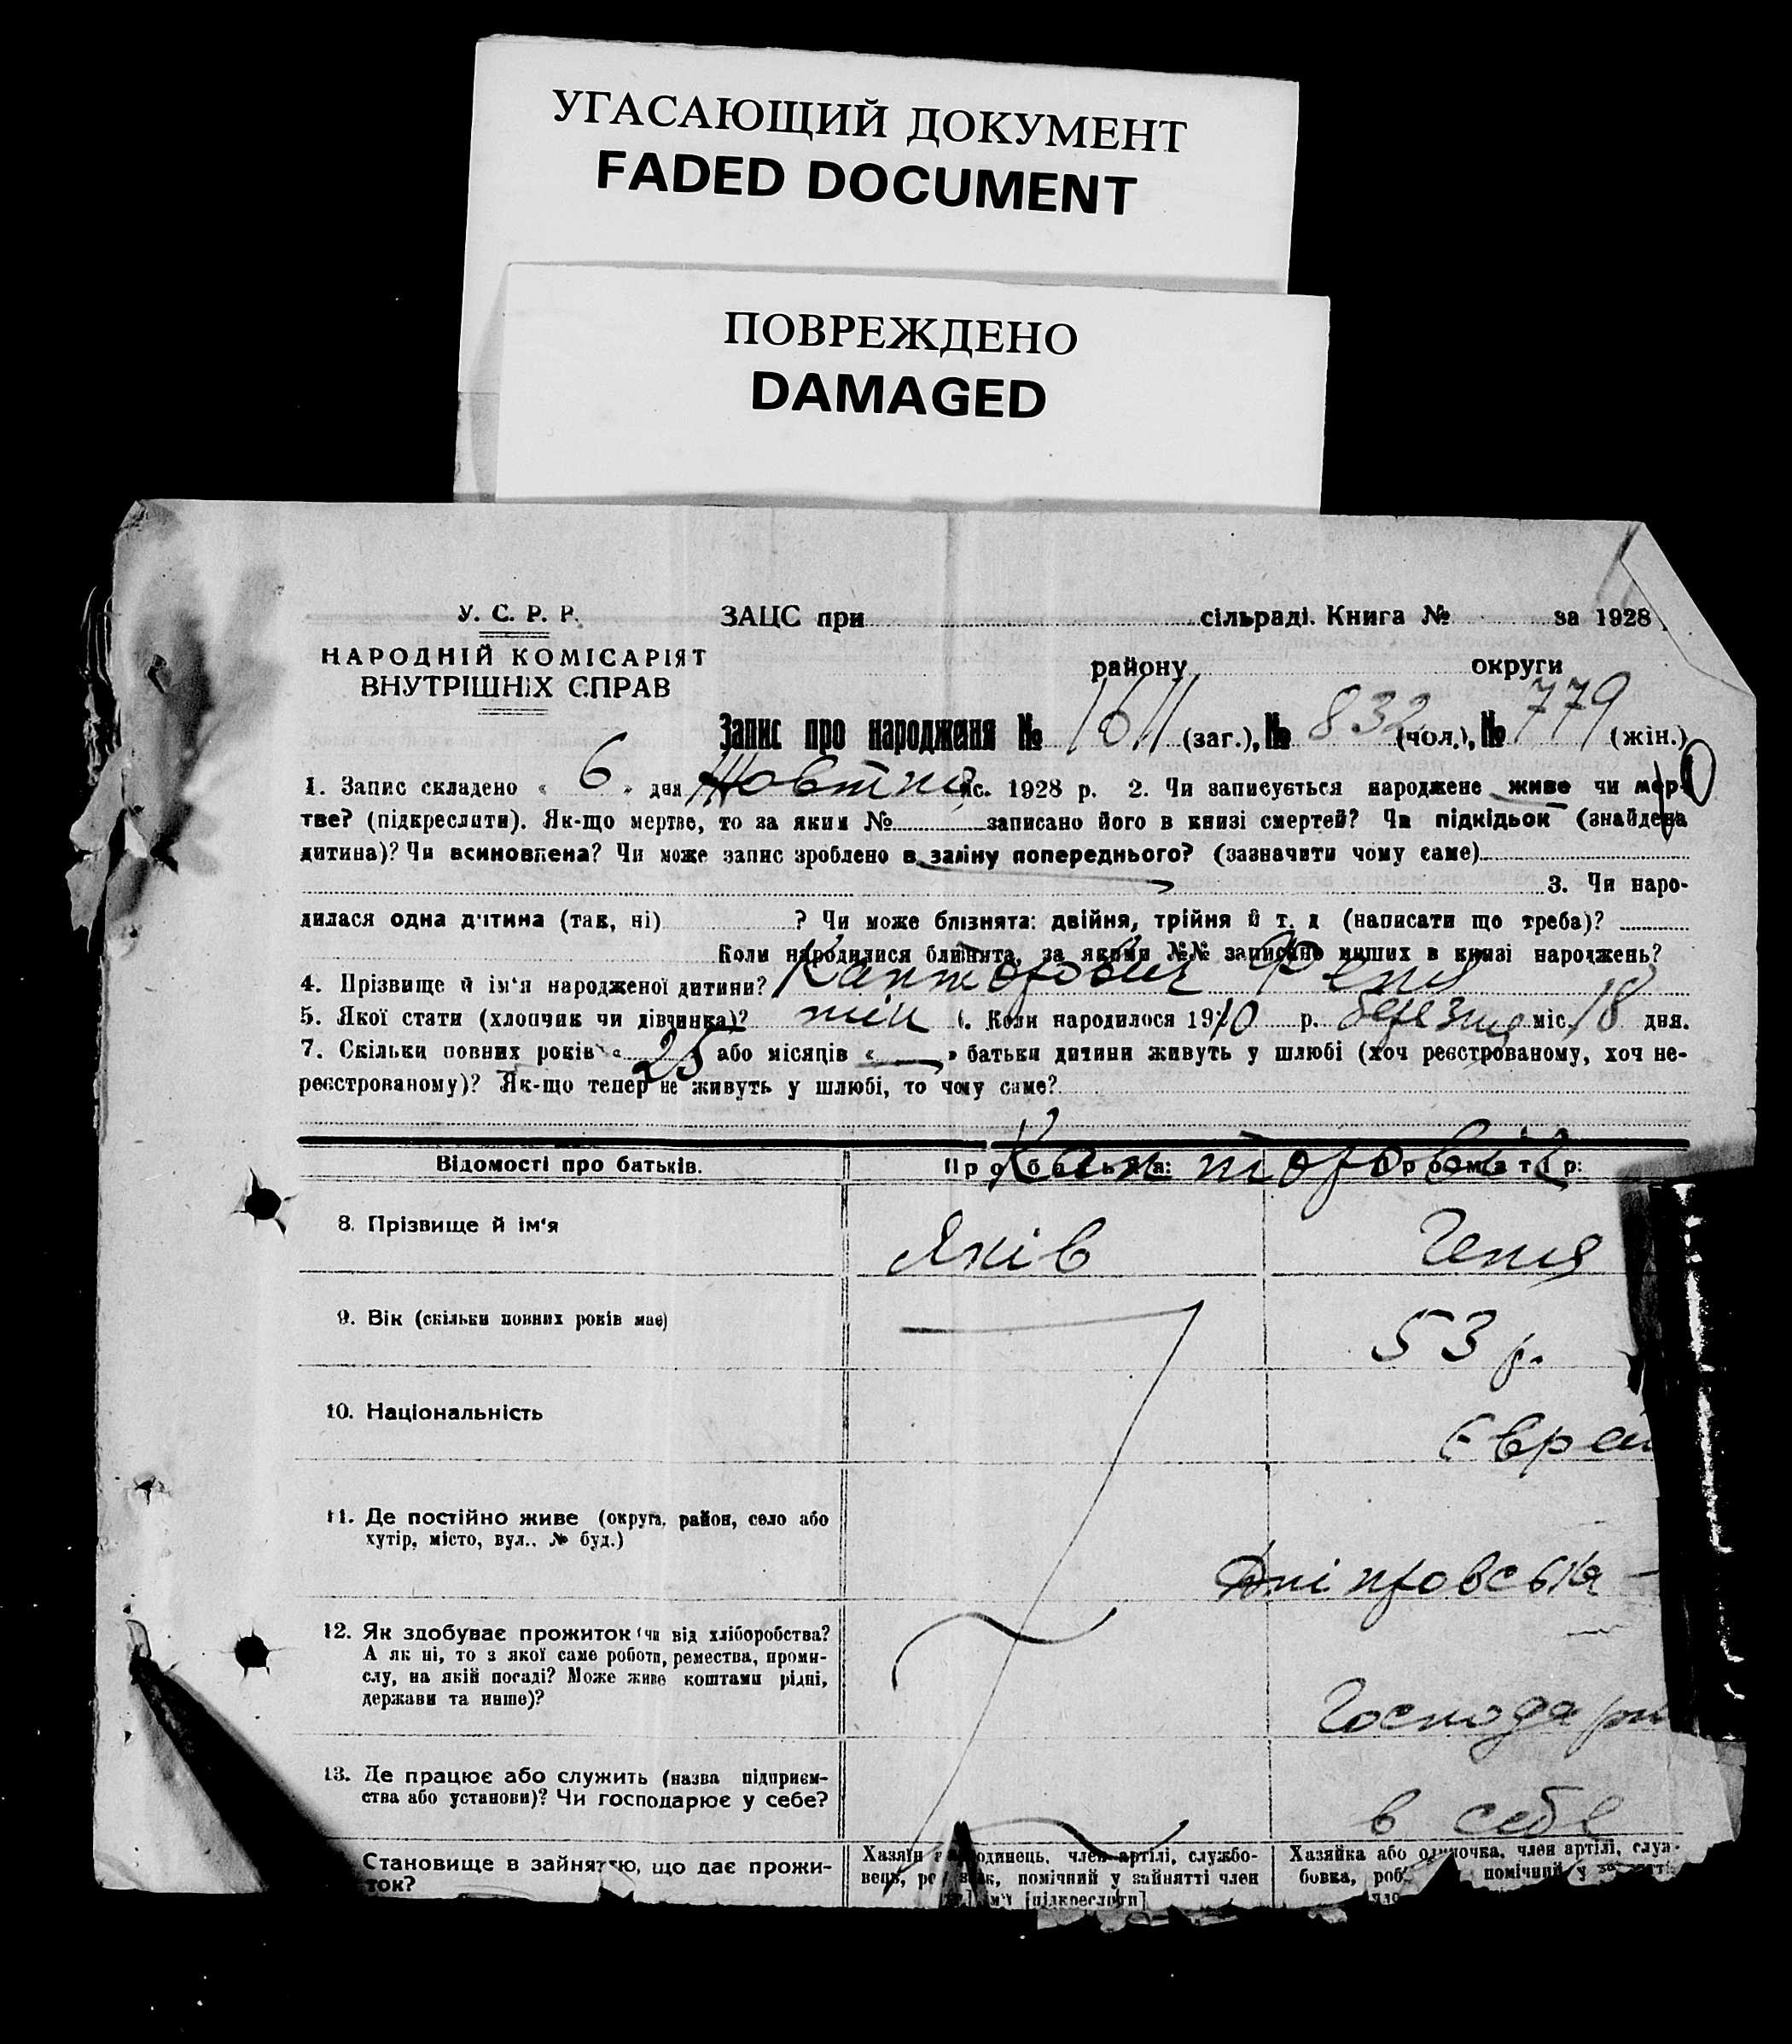 УГАСАЮЩИЙ ДОКУМЕНТ
FADED DOCUMENT
ПОВРЕЖДЕНО
DAMAGED
У. С. Р. Р.
НАРОДНІЙ КОМІСАРІЯТ
ВНУТРІШНІХ СПРАВ
ЗАЦС при сільраді. Книга № за 1928
району округи
Запис про народження № 1611 (заг.), № 832 (чол.), № 779 (жін.)
1. Запис складено « 6 » дня Жовтня міс. 1928 р. 2. Чи записується народжене живе чи мер-
тве? (підкреслити). Як-що мертве, то за яким № записано його в книзі смертей? Чи підкідьок (знайдена
дитина)? Чи всиновлена? Чи може запис зроблено в заміну попереднього? (зазначити чому саме)
3. Чи наро-
дилася одна дитина (так, ні) ? Чи може близнята: двійня, трійня й т. д (написати що треба)?
Коли народилися близнята, за якими №№ записано инших в книзі народжень?
4. Прізвище й ім'я народженої дитини? Канторович Феня
5. Якої стати (хлопчик чи дівчинка)? жін 6. Коли народилося 1910 р. березня міс. 18 дня.
7. Скільки повних років « 25 або місяців « — » батьки дитини живуть у шлюбі (хоч реєстрованому, хоч не-
реєстрованому)? Як-що тепер не живуть у шлюбі, то чому саме?
Відомості про батьків. Про батька: Про матір:
Канторович
8. Прізвище й ім'я Яків Геня
9. Вік (скільки повних років має) 53 р.
10. Національність Єврей
11. Де постійно живе (округа, район, село або
хутір, місто, вул.. № буд.)
Дніпровська
12. Як здобуває прожиток (чи від хліборобства?
А як ні, то з якої саме роботи, ремества, проми-
слу, на якій посаді? Може живе коштами рідні,
держави та инше)?
Господар
13. Де працює або служить (назва підприєм-
ства або установи)? Чи господарює у себе?
в себе
Становище в зайняттю, що дає прожи-
ток?
Хазяїн одинець, член артілі, службо-
вець, помічний у зайнятті член
[підкреслити]
Хазяйка або одиночка, член артілі, служ-
бовка, роб помічний у